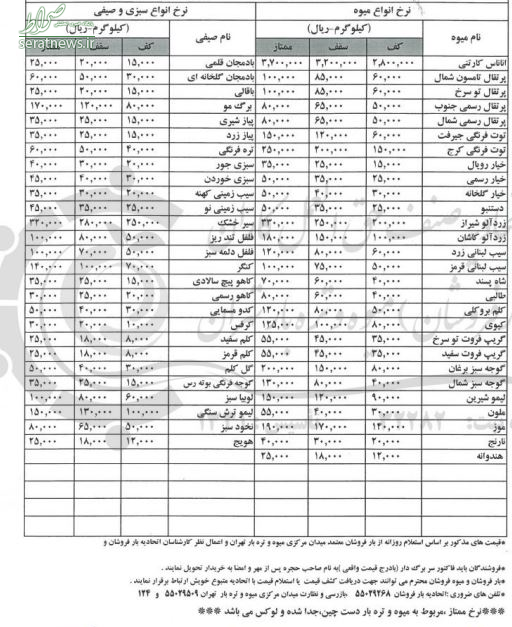 صراط
seratnews.ir
نرخ انواع میوه نرخ انواع سبزی و صیفی
نام میوه (کیلوگرم-ریال) نام صیفی (کیلوگرم-ریال)
کف سقف ممتاز کف سقف ممتاز
آناناس کارتنی ۲,۸۰۰,۰۰۰ ۳,۲۰۰,۰۰۰ ۳,۷۰۰,۰۰۰ بادمجان قلمی ۱۵,۰۰۰ ۲۰,۰۰۰ ۲۵,۰۰۰
پرتقال تامسون شمال ۶۰,۰۰۰ ۸۵,۰۰۰ ۱۰۰,۰۰۰ بادمجان گلخانه ای ۳۰,۰۰۰ ۵۰,۰۰۰ ۶۰,۰۰۰
پرتقال تو سرخ ۶۰,۰۰۰ ۸۵,۰۰۰ ۱۰۰,۰۰۰ باقالی ۱۵,۰۰۰ ۲۰,۰۰۰ ۲۵,۰۰۰
پرتقال رسمی جنوب ۵۰,۰۰۰ ۶۵,۰۰۰ ۸۰,۰۰۰ برگ مو ۸۰,۰۰۰ ۱۲۰,۰۰۰ ۱۷۰,۰۰۰
پرتقال رسمی شمال ۵۰,۰۰۰ ۶۵,۰۰۰ ۸۰,۰۰۰ پیاز شیری ۱۵,۰۰۰ ۲۵,۰۰۰ ۳۵,۰۰۰
توت فرنگی جیرفت ۶۰,۰۰۰ ۱۲۰,۰۰۰ ۱۵۰,۰۰۰ پیاز زرد ۱۵,۰۰۰ ۲۵,۰۰۰ ۳۵,۰۰۰
توت فرنگی کرج ۱۵۰,۰۰۰ ۲۰۰,۰۰۰ ۲۵۰,۰۰۰ تره فرنگی ۴۰,۰۰۰ ۵۰,۰۰۰ ۶۰,۰۰۰
خیار رویال ۱۵,۰۰۰ ۲۵,۰۰۰ ۳۵,۰۰۰ سبزی جور ۲۰,۰۰۰ ۳۰,۰۰۰ ۴۰,۰۰۰
خیار رسمی ۲۵,۰۰۰ ۳۵,۰۰۰ ۵۰,۰۰۰ سبزی خوردن ۳۰,۰۰۰ ۴۰,۰۰۰ ۴۵,۰۰۰
خیار گلخانه ۳۰,۰۰۰ ۴۰,۰۰۰ ۵۰,۰۰۰ سیب زمینی کهنه ۲۰,۰۰۰ ۳۰,۰۰۰ ۳۵,۰۰۰
دستنبو ۲۵,۰۰۰ ۳۵,۰۰۰ ۵۰,۰۰۰ سیب زمینی نو ۲۵,۰۰۰ ۳۵,۰۰۰ ۴۵,۰۰۰
زردآلو شیراز ۲۰۰,۰۰۰ ۲۵۰,۰۰۰ ۳۳۰,۰۰۰ سیر خشک ۲۵۰,۰۰۰ ۲۸۰,۰۰۰ ۳۲۰,۰۰۰
زردآلو کاشان ۱۰۰,۰۰۰ ۱۵۰,۰۰۰ ۱۸۰,۰۰۰ فلفل تند ریز ۵۰,۰۰۰ ۸۰,۰۰۰ ۱۰۰,۰۰۰
سیب لبنانی زرد ۶۰,۰۰۰ ۸۰,۰۰۰ ۱۲۰,۰۰۰ فلفل دلمه سبز ۵۰,۰۰۰ ۷۰,۰۰۰ ۱۰۰,۰۰۰
سیب لبنانی قرمز ۵۰,۰۰۰ ۷۵,۰۰۰ ۱۰۰,۰۰۰ کنگر ۷۰,۰۰۰ ۱۰۰,۰۰۰ ۱۴۰,۰۰۰
شاه پسند ۴۰,۰۰۰ ۶۰,۰۰۰ ۷۰,۰۰۰ کاهو پیچ سالادی ۱۵,۰۰۰ ۲۵,۰۰۰ ۳۵,۰۰۰
طالبی ۴۰,۰۰۰ ۶۰,۰۰۰ ۸۰,۰۰۰ کاهو رسمی ۲۰,۰۰۰ ۲۵,۰۰۰ ۳۰,۰۰۰
کلم بروکلی ۵۰,۰۰۰ ۸۰,۰۰۰ ۱۲۰,۰۰۰ کدو مسمایی ۳۰,۰۰۰ ۴۰,۰۰۰ ۵۰,۰۰۰
کیوی ۸۰,۰۰۰ ۱۰۰,۰۰۰ ۱۲۵,۰۰۰ کرفس ۱۰,۰۰۰ ۲۰,۰۰۰ ۳۰,۰۰۰
گریپ فروت تو سرخ ۳۵,۰۰۰ ۴۵,۰۰۰ ۵۵,۰۰۰ کلم سفید ۸,۰۰۰ ۱۸,۰۰۰ ۲۵,۰۰۰
گریپ فروت سفید ۳۵,۰۰۰ ۴۵,۰۰۰ ۵۵,۰۰۰ کلم قرمز ۸,۰۰۰ ۱۸,۰۰۰ ۲۵,۰۰۰
گوجه سبز برغان ۸۰,۰۰۰ ۱۵۰,۰۰۰ ۲۰۰,۰۰۰ گل کلم ۳۰,۰۰۰ ۴۰,۰۰۰ ۵۰,۰۰۰
گوجه سبز شمال ۴۰,۰۰۰ ۸۰,۰۰۰ ۱۳۰,۰۰۰ گوجه فرنگی بوته رس ۱۵,۰۰۰ ۲۵,۰۰۰ ۳۵,۰۰۰
لیمو شیرین ۹۰,۰۰۰ ۱۲۰,۰۰۰ ۱۵۰,۰۰۰ لوبیا سبز ۶۰,۰۰۰ ۸۰,۰۰۰ ۱۰۰,۰۰۰
ملون ۳۰,۰۰۰ ۴۰,۰۰۰ ۵۵,۰۰۰ لیمو ترش سنگی ۱۰۰,۰۰۰ ۱۳۰,۰۰۰ ۱۵۰,۰۰۰
موز ۱۴۰,۰۰۰ ۱۷۰,۰۰۰ ۱۹۰,۰۰۰ نخود سبز ۵۰,۰۰۰ ۶۵,۰۰۰ ۸۰,۰۰۰
نارنج ۲۰,۰۰۰ ۳۰,۰۰۰ ۴۰,۰۰۰ هویج ۱۲,۰۰۰ ۱۸,۰۰۰ ۲۵,۰۰۰
هندوانه ۱۲,۰۰۰ ۱۸,۰۰۰ ۲۵,۰۰۰
*قیمت های مذکور بر اساس استعلام روزانه از بار فروشان معتمد میدان مرکزی میوه و تره بار تهران و اعمال نظر کارشناسان اتحادیه بار فروشان و
*فروشندگان باید فاکتور سر برگ دار (بادرج قیمت واقعی) به نام صاحب حجره پس از مهر و امضا به خریدار تحویل نمایند .
*بار فروشان و میوه فروشان محترم می توانند جهت دریافت کشف قیمت یا استعلام قیمت با اتحادیه متبوع خویش ارتباط برقرار نمایند .
*تلفن های ضروری : اتحادیه بار فروشان ۵۵۰۲۹۲۶۸ بازرسی و نظارت میدان مرکزی میوه و تره بار تهران ۵۵۰۲۹۵۰۹ و ۱۲۴
***نرخ ممتاز ،مربوط به میوه و تره بار دست چین،جدا شده و لوکس می باشد ***